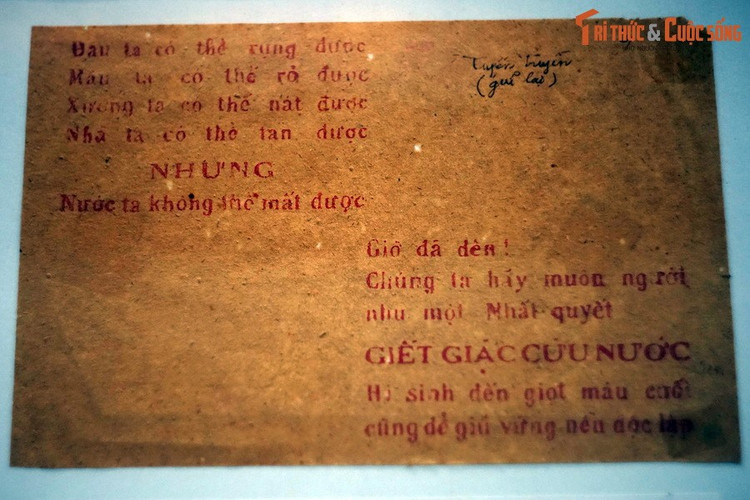 TRI THỨC & CUỘC SỐNG
Đầu ta có thể rụng được
Máu ta có thể rỏ được
Xương ta có thể nát được
Nhà ta có thể tan được
NHƯNG
Nước ta không thể mất được
Tuyên truyền
(gửi lại)
Giờ đã đến!
Chúng ta hãy muôn người
như một Nhất quyết
GIẾT GIẶC CỨU NƯỚC
Hi sinh đến giọt máu cuối
cũng để giữ vững nền độc lập